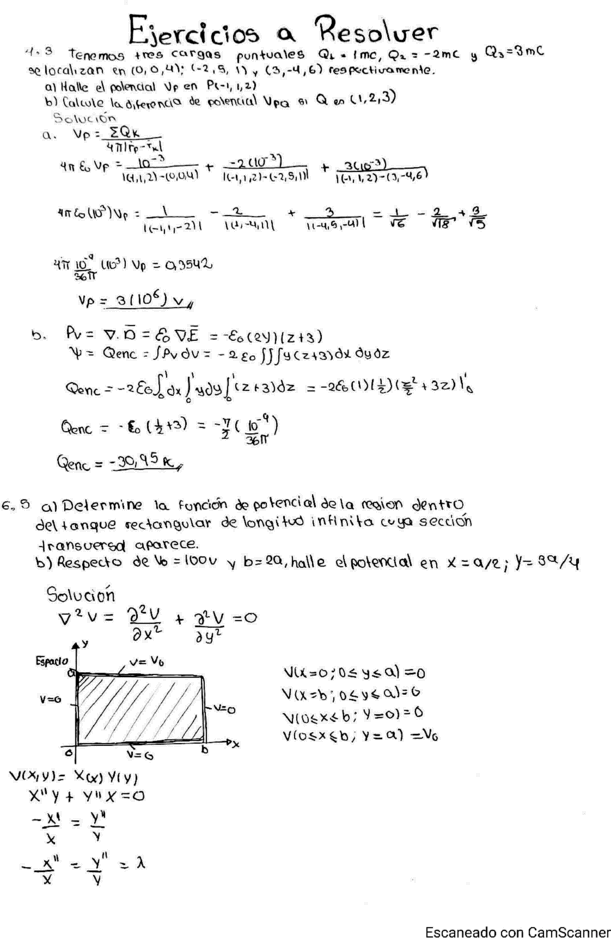 Ejercicios a Resolver
4.3 Tenemos tres cargas puntuales Q₁ = 1mC, Q₂ = -2mC y Q₃=3mC
se localizan en (0,0,4); (-2,5,1) y (3,-4,6) respectivamente.
a) Halle el potencial Vp en P(-1,1,2)
b) Calcule la diferencia de potencial VPQ si Q es (1,2,3)
Solución
a. Vp = ΣQk / 4π|rp-rk|
4π ε₀ Vp = 10⁻³ / |(-1,1,2)-(0,0,4)| + -2(10⁻³) / |(-1,1,2)-(-2,5,1)| + 3(10⁻³) / |(-1,1,2)-(3,-4,6)
4π ε₀ (10³) Vp = 1 / |(-1,1,-2)| - 2 / |(1,-4,1)| + 3 / |(-4,5,-4)| = 1/√6 - 2/√18 + 3/√5
4π 10⁻⁹/36π (10³) Vp = 0,3542
Vp = 3(10⁶) V
b. Pv = ∇.D̄ = ε₀ ∇.Ē = -ε₀(2y)(z+3)
Ψ = Qenc = ∫Pv dv = -2ε₀ ∫∫∫y(z+3)dx dy dz
Qenc = -2ε₀ ∫₀¹ dx ∫₀¹ y dy ∫₀¹ (z+3)dz = -2ε₀(1)(1/2)(z²/2 + 3z)|₀¹
Qenc = -ε₀ (1/2+3) = -7/2 (10⁻⁹/36π)
Qenc = -30,95 PC
6.5 a) Determine la función de potencial de la region dentro
del tanque rectangular de longitud infinita cuya sección
transversal aparece.
b) Respecto de V₀ = 100v y b=2a, halle el potencial en x = a/2; y= 3a/4
Solución
∇²V = ∂²V/∂x² + ∂²V/∂y² = 0
y
Espacio
a
V= V₀
V=0
V=0
0
V=0
b
x
V(x=0; 0≤ y ≤ a) = 0
V(x=b; 0≤ y ≤ a)= 0
V(0≤x≤b; y=0) = 0
V(0≤x≤b; y=a) = V₀
V(x,y) = X(x) Y(y)
X"Y + Y"X = 0
-X'/X = Y"/Y
-X"/X = Y"/Y = λ
Escaneado con CamScanner